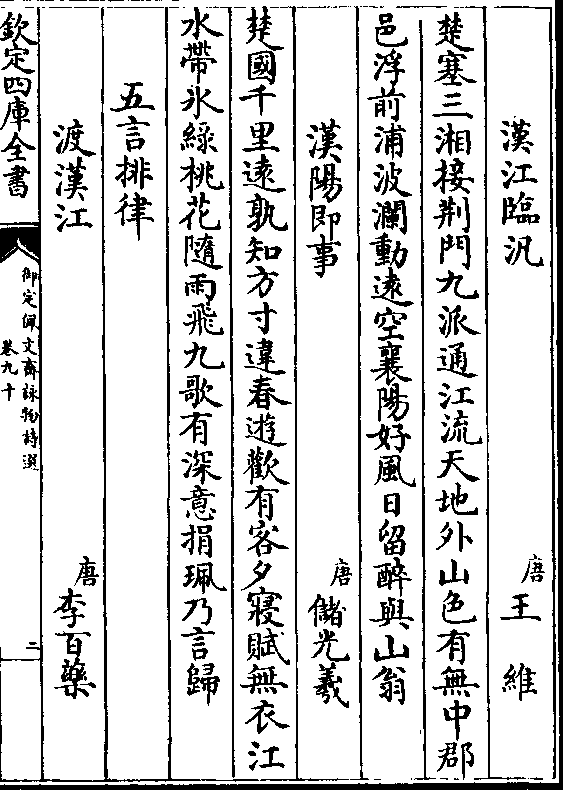 漢江臨汎 唐王維
楚塞三湘接荆門九派通江流天地外山色有無中郡
邑浮前浦波瀾動遠空襄陽好風日留醉與山翁
漢陽即事 唐儲光羲
楚國千里遠孰知方寸違春遊歡有客夕寢賦無衣江
水帶氷綠桃花隨雨飛九歌有深意捐珮乃言歸
五言排律
渡漢江 唐李百藥
欽定四庫全書
御定佩文齋詠物詩選
卷九十
二